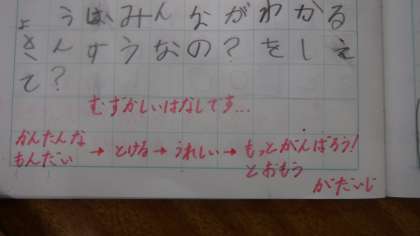 ょうはみんながわかる
さんすうなの?をしえ
て?
むずかしいはなしです...
かんたんな
もんだい → とける → うれしい → もっとがんばろう!
とおもう
がだいじ